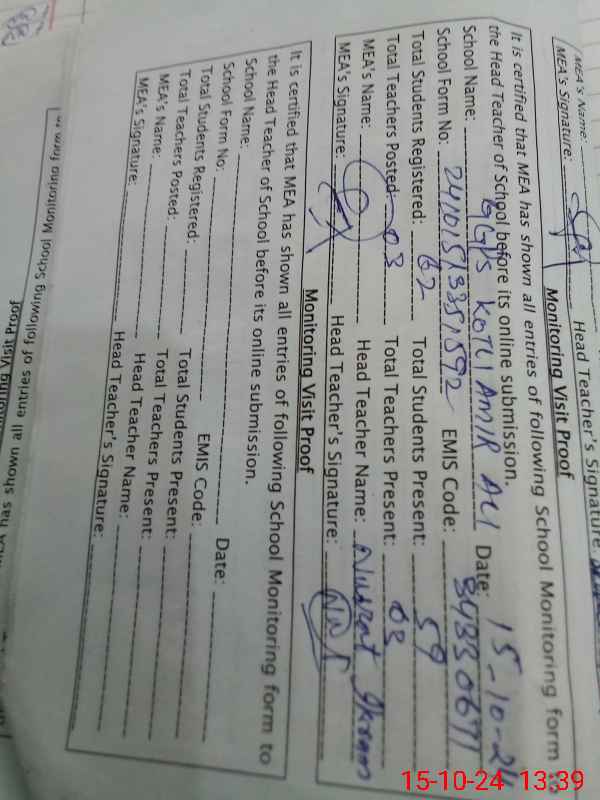 MEA's Name:
MEA's Signature: Head Teacher's Signature:
Monitoring Visit Proof
It is certified that MEA has shown all entries of following School Monitoring form to
the Head Teacher of School before its online submission.
School Name: GGPS KOTLI AMIR ALI Date: 15-10-24
School Form No: EMIS Code: 34330671
Total Students Registered: 62 Total Students Present: 59
Total Teachers Posted: 03 Total Teachers Present: 03
MEA's Name: Head Teacher Name: Nusrat Ikram
MEA's Signature: Head Teacher's Signature:
Monitoring Visit Proof
It is certified that MEA has shown all entries of following School Monitoring form to
the Head Teacher of School before its online submission.
School Name: Date:
School Form No: EMIS Code:
Total Students Registered: Total Students Present:
Total Teachers Posted: Total Teachers Present:
MEA's Name: Head Teacher Name:
MEA's Signature: Head Teacher's Signature:
15-10-24 13:39